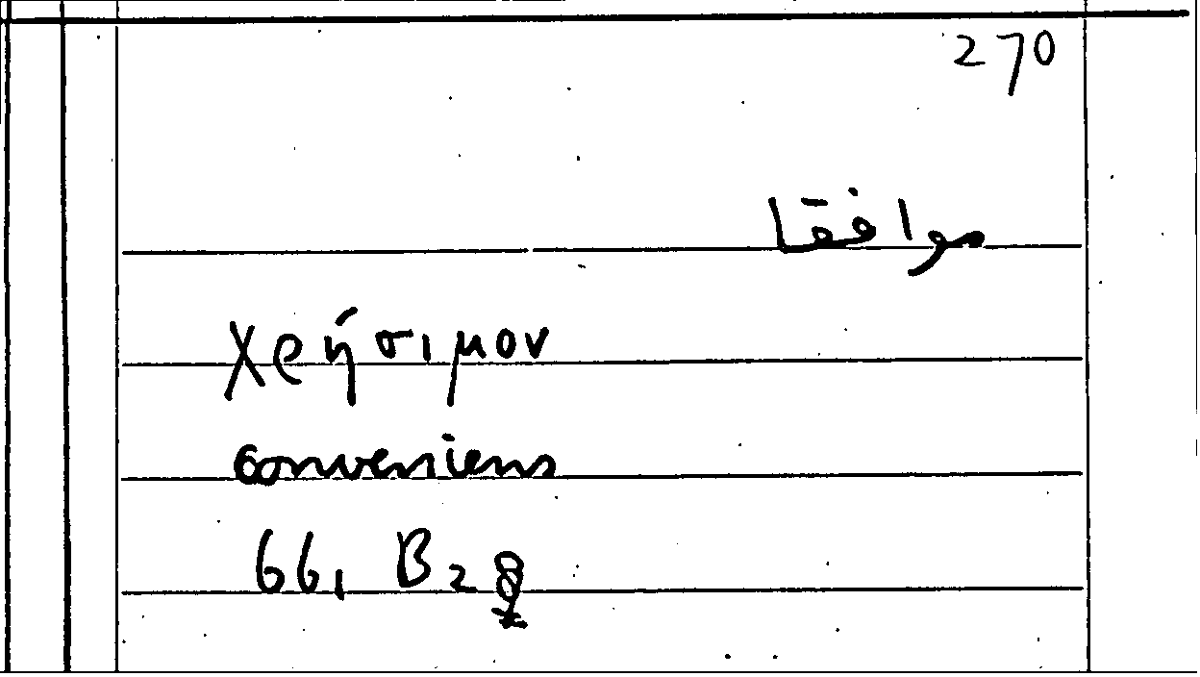 270
موافقا
χρήσιμον
conveniens
66, B 2 8